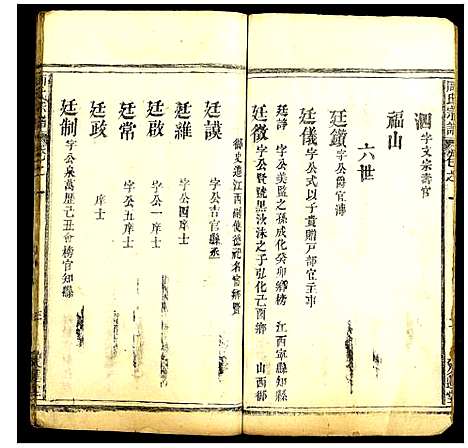 周氏宗譜
泗 字文宗壽官
福山
六世
廷鑽 字公爵官溥
廷儀 字公式以子貴贈戸部官主事
廷諍 字公美監之孫成化癸卯鄉榜 江西寧縣知縣
廷徵 字公賢號黒汝沫之子弘化己酉鄉 山西鄉
御史進江西副使從祀名官鄉賢
廷謨 字公吉官縣丞
廷維 字公四庠士
廷啟 字公一庠士
廷常 字公五庠士
廷政 庠士
廷制 字公泉萬歷己丑會榜官知縣